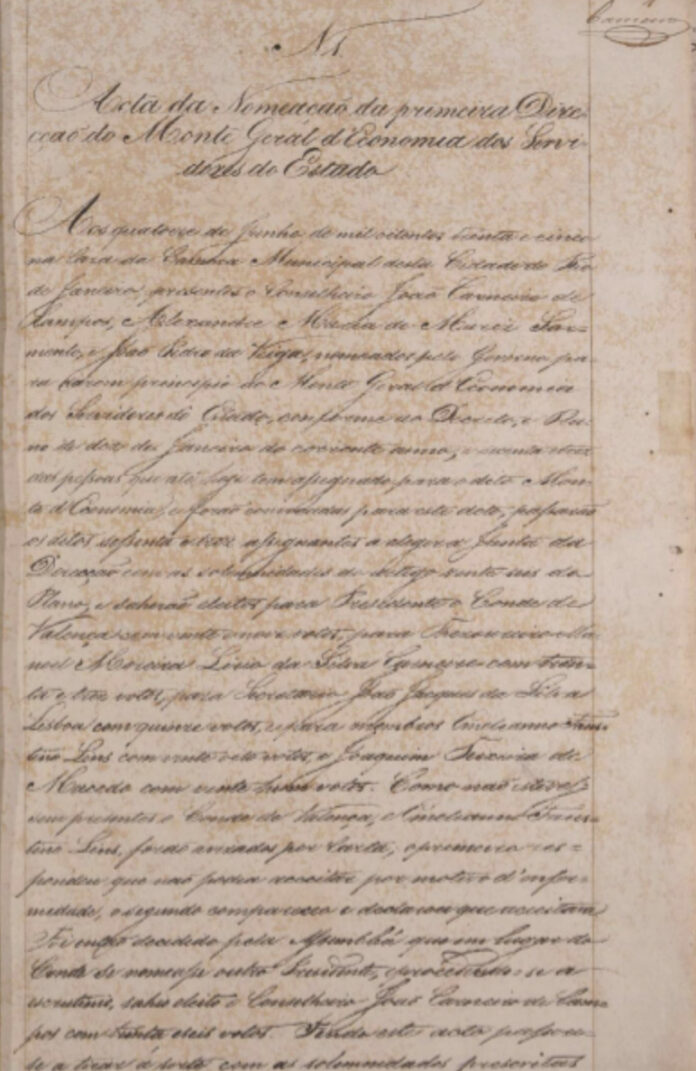 Carneiro
N 1.
Acta da Nomeacaõ da primeira Dire-
cçaõ do Monte Geral d'Economia dos Servi-
dores do Estado
Aos quatorze de Junho de mil oitentos trinta e cinco
na Caza da Camera Municipal desta Cidade do Rio
de Janeiro, presentes o Conselheiro Joaõ Carneiro de
Campos, Alexandre Maria de Mariz Sar-
mento, e Joaõ Pedro da Veiga, nomeados pelo Governo pa-
ra darem principio ao Monte Geral d'Economia
dos Servidores do Estado, conforme ao Decreto, e Pla-
no de dez de Janeiro do corrente anno, e setenta e trez
das pessoas que até hoje tem assignado para o dito Mon-
te d'Economia, e foraõ convidadas para este acto, passaraõ
os ditos setenta e trez assignantes a eleger a Junta da
Direcçaõ com as solemnidades do artigo vinte seis do
Plano, e sahiraõ eleitos para Presidente o Conde de
Valença com vinte e nove votos, para Thezoureiro Ma-
noel Moreira Lirio da Silva Carneiro com trin-
ta e trez votos, para Secretario Joaõ Jacques da Silva
Lisboa com quinze votos, e para membros Emeleanno Faus-
tino Lins com vinte oito votos, e Joaquim Teixeira de
Macedo com vinte hum votos. Como naõ estives-
sem presentes o Conde de Valença, e Emeleanno Faus-
tino Lins, foraõ avizados por Carta; o primeiro res-
pondeu que naõ podia acceitar por motivo d'enfer-
midade, o segundo compareceo e declarou que acceitava.
Foi entaõ decidido pela Assembléa que em lugar do
Conde se nomeasse outro Presidente, e procedendo-se a
escrutinio, sahio eleito o Conselheiro Joaõ Carneiro de Cam-
pos com trinta e seis votos. Findo este acto passou-
se a tirar á sorte com as solemnidades prescritas